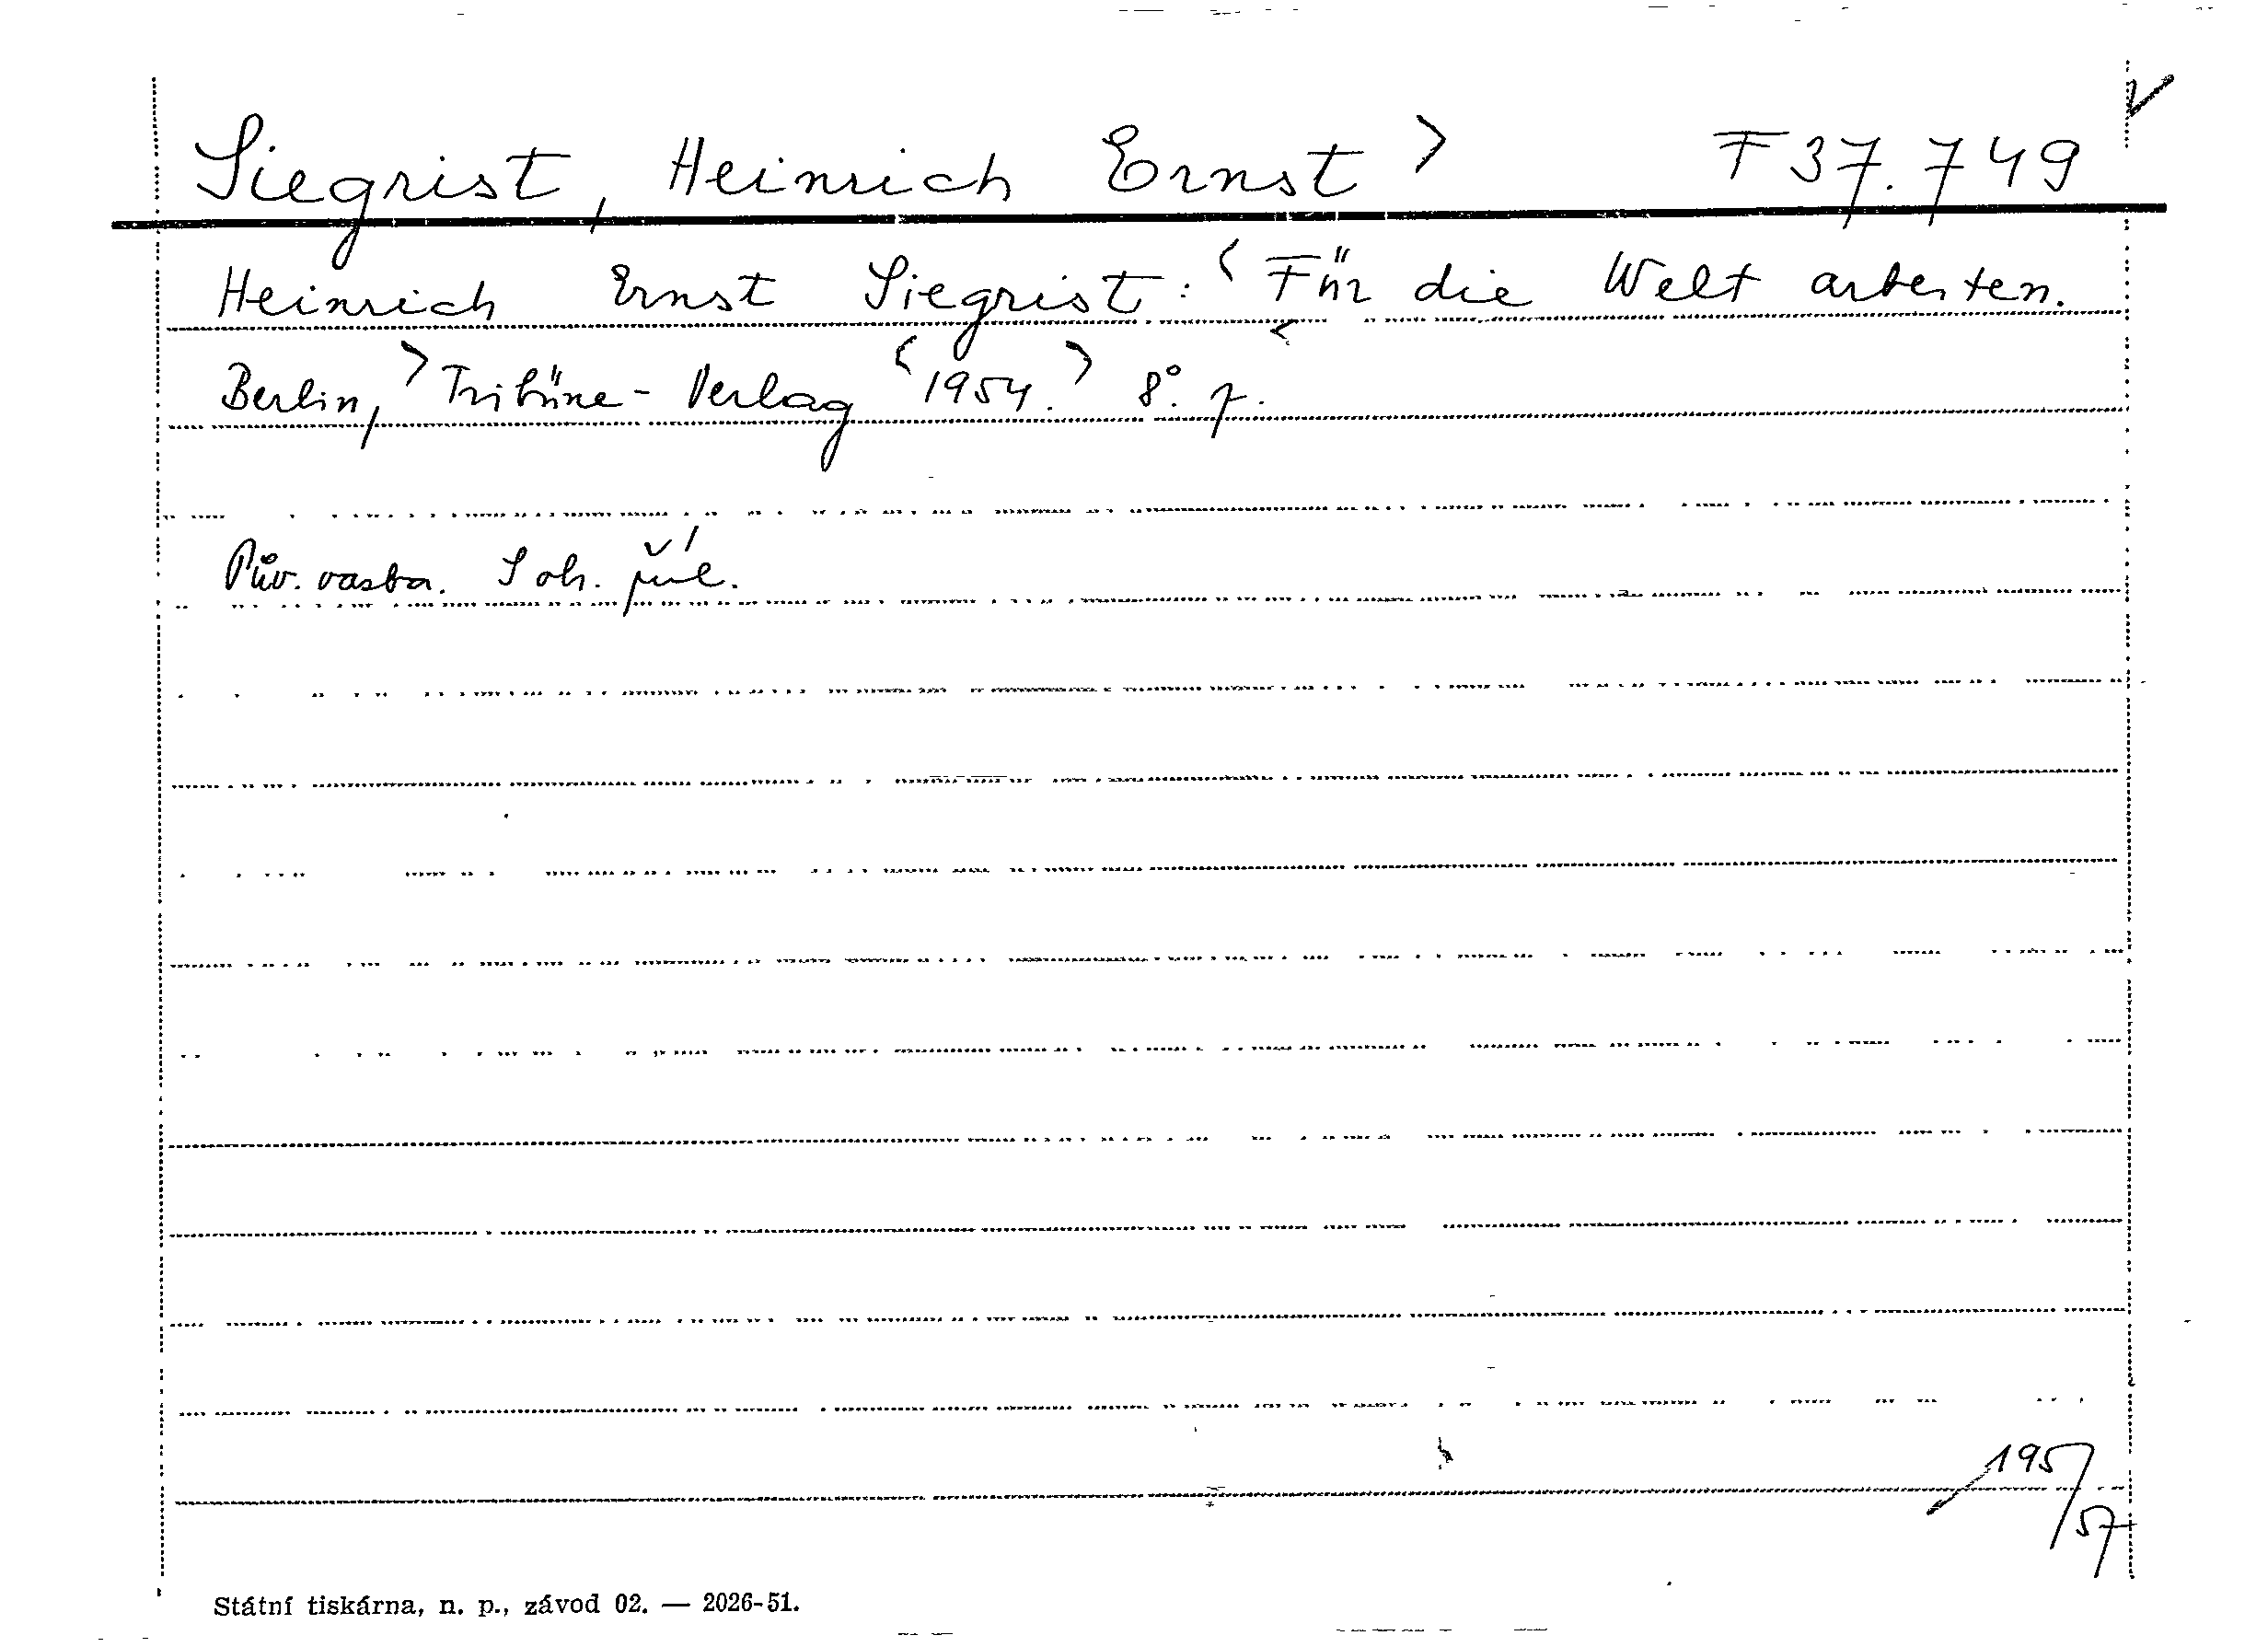 Siegrist, Heinrich Ernst > F 37.749
Heinrich Ernst Siegrist: < Für die Welt arbeiten.
Berlin, > Tribüne-Verlag < 1954. > 8°.
Pův. vazba. S ob. příl.
195/57
Státní tiskárna, n. p., závod 02. — 2026-51.